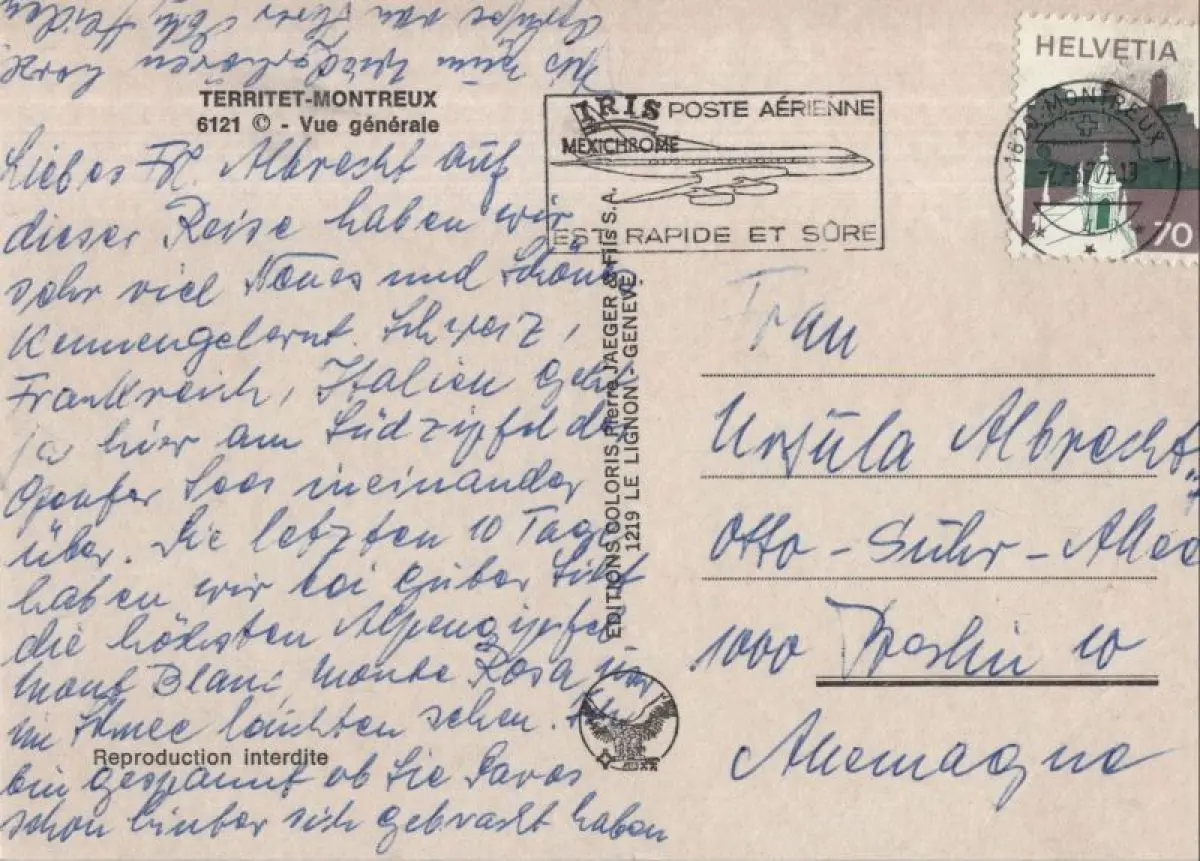 TERRITET-MONTREUX
6121 © - Vue générale
Liebes Frl. Albrecht auf
dieser Reise haben wir
sehr viel Neues und Schönes
Kennengelernt. Schweiz,
Frankreich, Italien geht
ja hier am Südzipfel des
Genfer Sees ineinander
über. Die letzten 10 Tage
haben wir bei guter Sicht
die höhsten Alpengipfel
Mont Blanc, Monte Rosa
im Schnee leuchten sehen. Ich
bin gespannt ob Sie Davos
schon hinter sich gebracht haben
Bis zum Wiederhören herzl.
Grüsse von Ihrer
Reproduction interdite
IRIS
MEXICHROME
POSTE AÉRIENNE
EST RAPIDE ET SÛRE
EDITIONS COLORIS Pierre JAEGER & Fils S.A.
1219 LE LIGNON - GENEVE
HELVETIA
70
1820 MONTREUX 1
Frau
Ursula Albrecht
Otto-Suhr-Allee
1000 Berlin 10
Allemagne